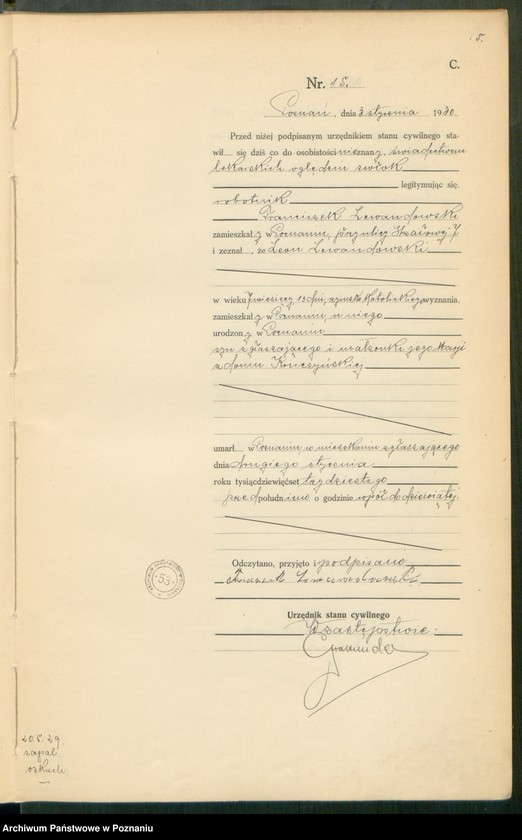 5.
C.
Nr. 15.
Poznań, dnia 3 stycznia 1930
Przed niżej podpisanym urzędnikiem stanu cywilnego sta-
wił się dziś co do osobistości nieznany, świadectwem
lekarskich oględzin zwłok
legitymując się,
robotnik
Franciszek Lewandowski
zamieszkały w Poznaniu, przy ulicy 7
i zeznał, że Leon Lewandowski
w wieku 7 miesięcy 13 dni, rzymsko katolickiego wyznania,
zamieszkały w Poznaniu, u niego
urodzony w Poznaniu
syn zgłaszającego i małżonki jego Marji
z domu
umarł w Poznaniu, w mieszkaniu zgłaszającego
dnia drugiego stycznia
roku tysiącdziewięćset trzydziestego
przed południem o godzinie wpół do dziesiątej.
Odczytano, przyjęto i podpisano
Franciszek Lewandowski
Urzędnik stanu cywilnego
W zastępstwie:
53
20.5.29
zapal.
oskrzeli
Archiwum Państwowe w Poznaniu